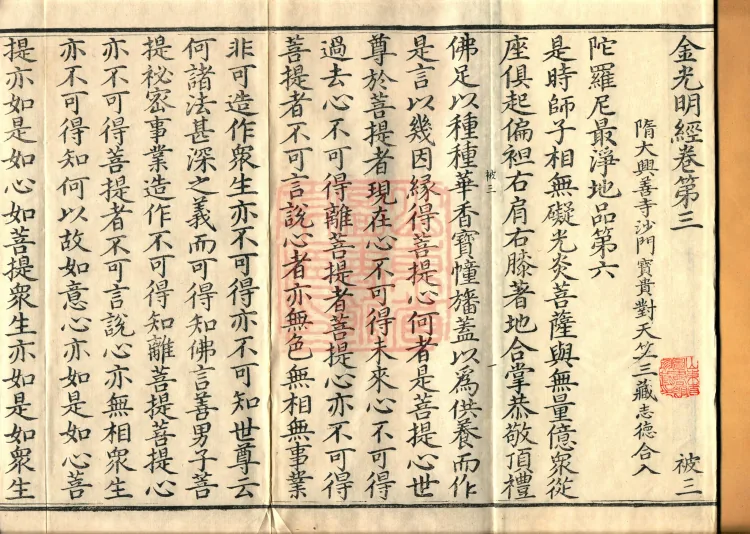 金光明經卷第三 被三
隋大興善寺沙門寶貴對天竺三藏志德合入
陀羅尼最淨地品第六
是時師子相無礙光炎菩薩與無量億衆從
座俱起偏袒右肩右膝著地合掌恭敬頂禮
被三
佛足以種種華香寶幢旛蓋以爲供養而作
是言以幾因緣得菩提心何者是菩提心世
尊於菩提者現在心不可得未來心不可得
過去心不可得離菩提者菩提心亦不可得
菩提者不可言說心者亦無色無相無事業
非可造作衆生亦不可得亦不可知世尊云
何諸法甚深之義而可得知佛言善男子菩
提祕密事業造作不可得知離菩提菩提心
亦不可得菩提者不可言說心亦無相衆生
亦不可得知何以故如意心亦如是如心菩
提亦如是如心如菩提衆生亦如是如衆生